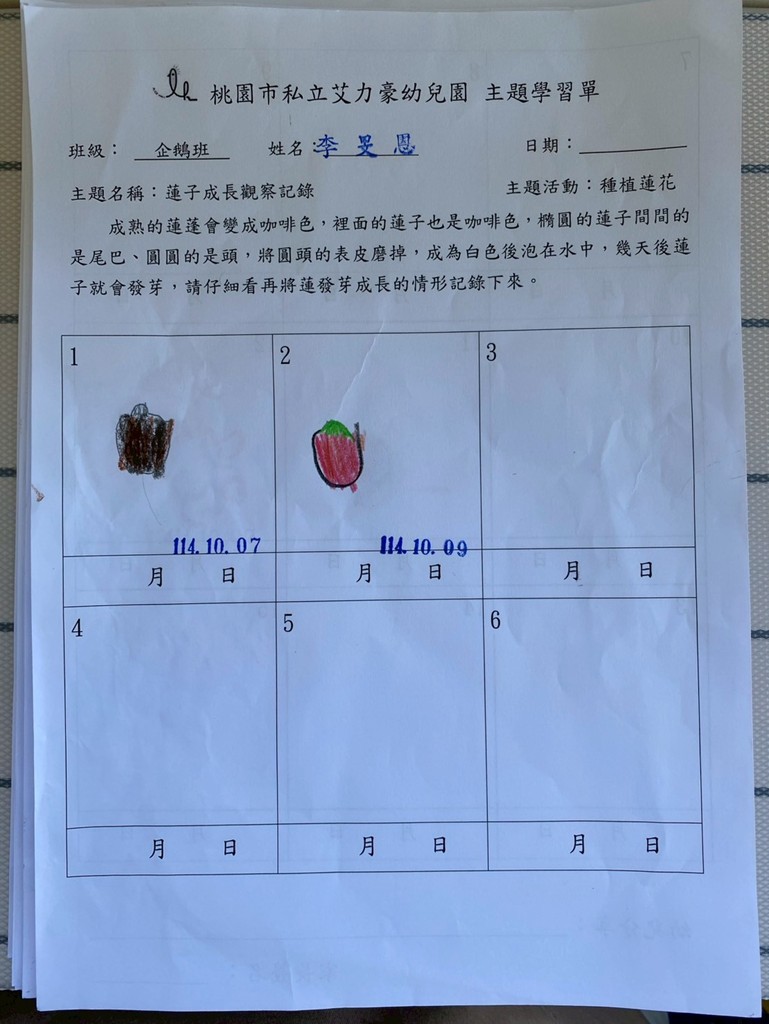 桃園市私立艾力豪幼兒園 主題學習單
班級： 企鵝班 姓名：李旻恩 日期：
主題名稱：蓮子成長觀察記錄 主題活動：種植蓮花
成熟的蓮蓬會變成咖啡色，裡面的蓮子也是咖啡色，橢圓的蓮子間間的
是尾巴、圓圓的是頭，將圓頭的表皮磨掉，成為白色後泡在水中，幾天後蓮
子就會發芽，請仔細看再將蓮發芽成長的情形記錄下來。
1 2 3
114.10.07 114.10.09
月 日 月 日 月 日
4 5 6
月 日 月 日 月 日